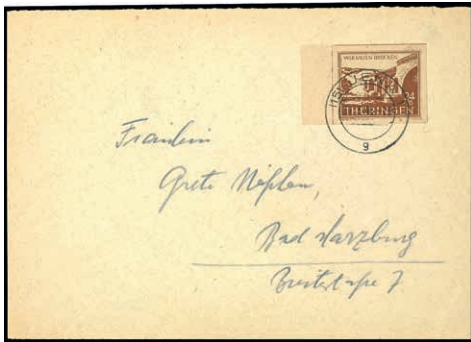 WIR BAUEN BRÜCKEN
24
THÜRINGEN
g
Fräulein
Grete
Bad Harzburg
Breitestraße 7